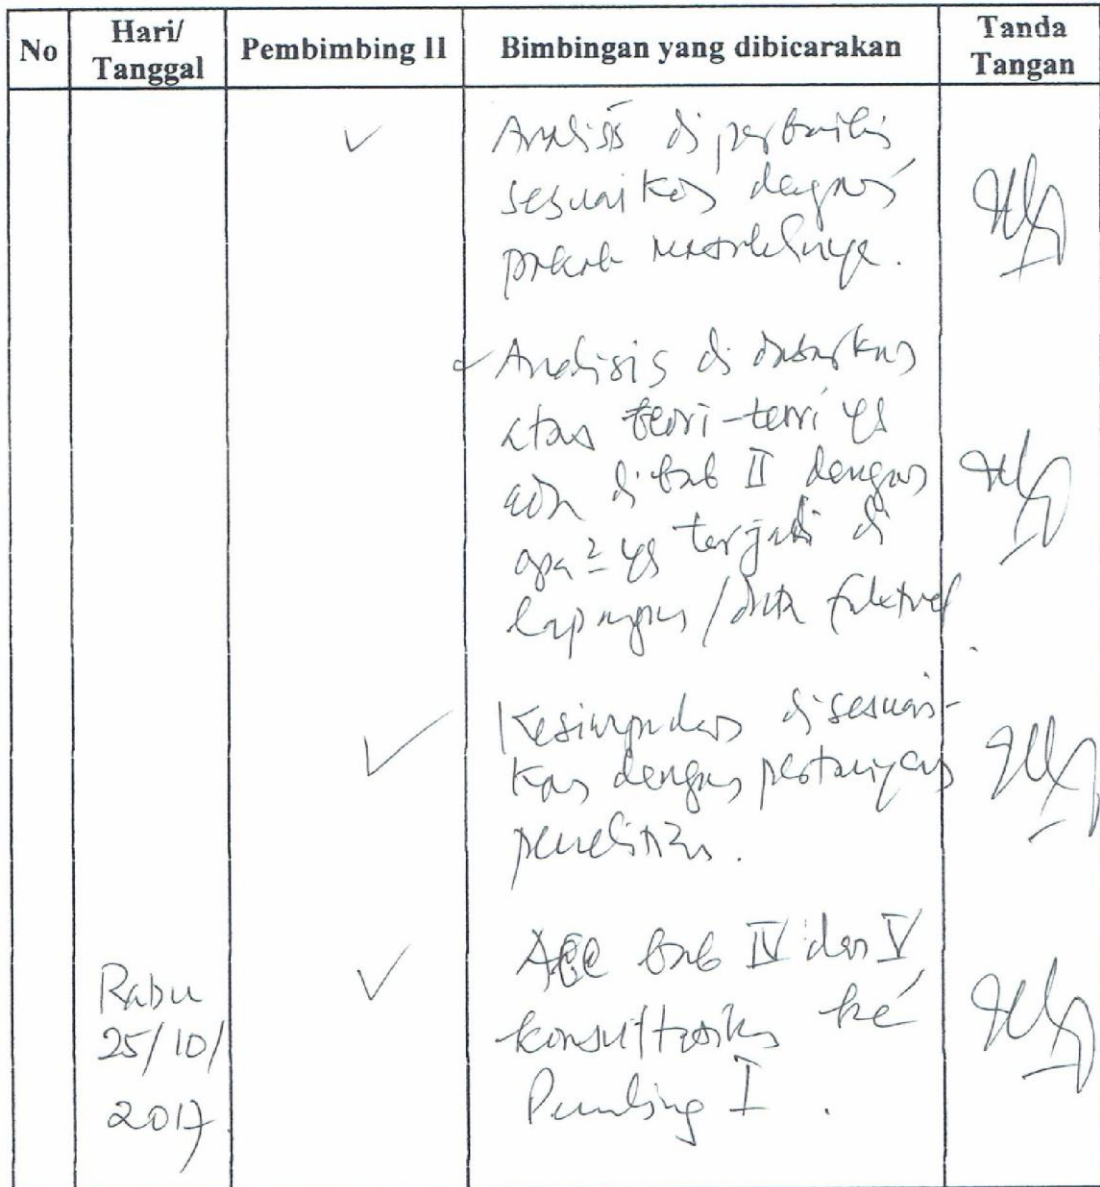 No
Hari/
Tanggal
Pembimbing II
Bimbingan yang dibicarakan
Tanda
Tangan
Analisis di perbaiki
sesuaikan dengan
pokok masalahnya.
Analisis di dasarkan
atas teori-teori yg
ada di bab II dengan
apa2 yg terjadi di
lapangan / data faktual.
Kesimpulan disesuai-
kan dengan pertanyaan
penelitian.
Rabu
25/10/
2017
ACC bab IV dan V
konsultasikan ke
Pembimbing I.